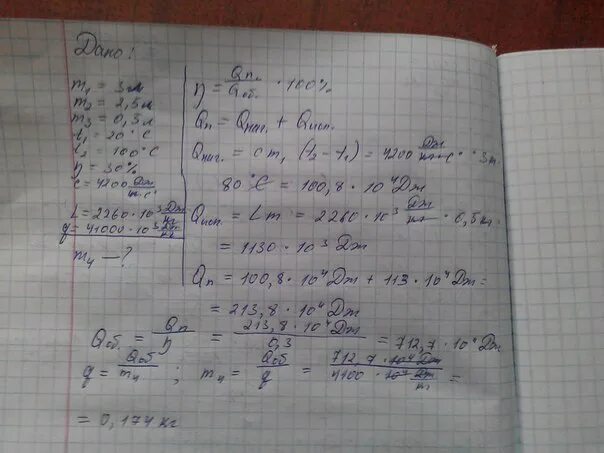 Дано:
m₁ = 3л
m₂ = 2,5л
m₃ = 0,5л
t₁ = 20°C
t₂ = 100°C
η = 30%
c = 4200 Дж/кг·°C
L = 2260·10³ Дж/кг
q = 41000·10³ Дж/кг
m₄ — ?
η = Qп./Qоб. · 100%
Qп = Qнаг. + Qисп.
Qнаг. = cm₁ (t₂ - t₁) = 4200 Дж/кг·°C · 3л ·
80°C = 100,8 · 10⁴ Дж
Qисп. = Lm = 2260 · 10³ Дж/кг · 0,5кг
= 1130 · 10³ Дж
Qп = 100,8 · 10⁴ Дж + 113 · 10⁴ Дж =
= 213,8 · 10⁴ Дж
Qоб. = Qп/η = 213,8 · 10⁴ Дж/0,3 = 712,7 · 10⁴ Дж
q = Qоб/m₄ ; m₄ = Qоб/q = 712,7 · 10⁴ Дж/4100 · 10⁴ Дж/кг =
= 0,174 кг